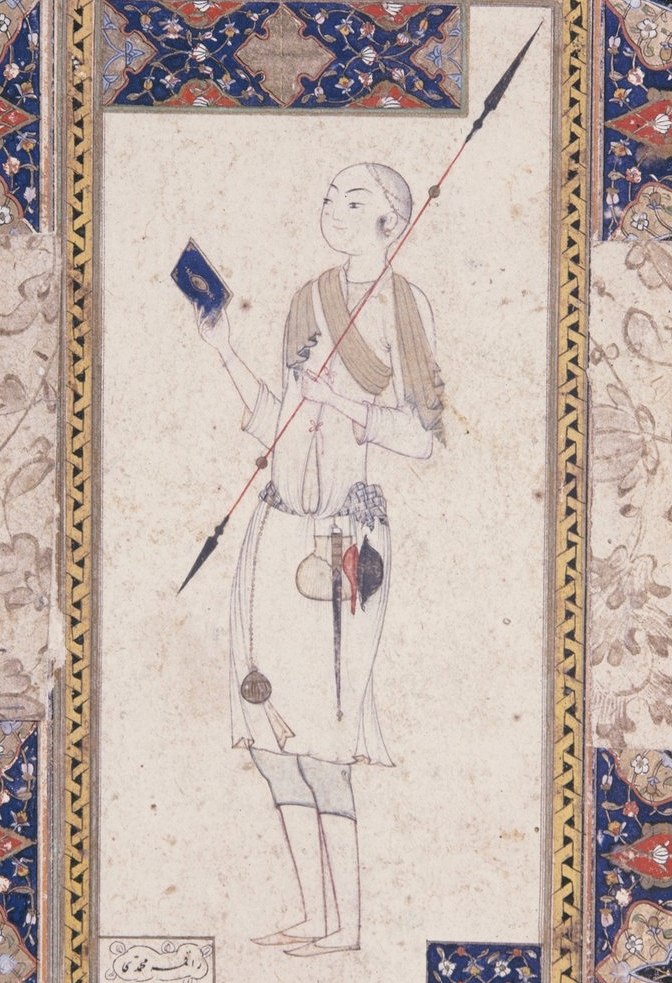 راقمه محمدی